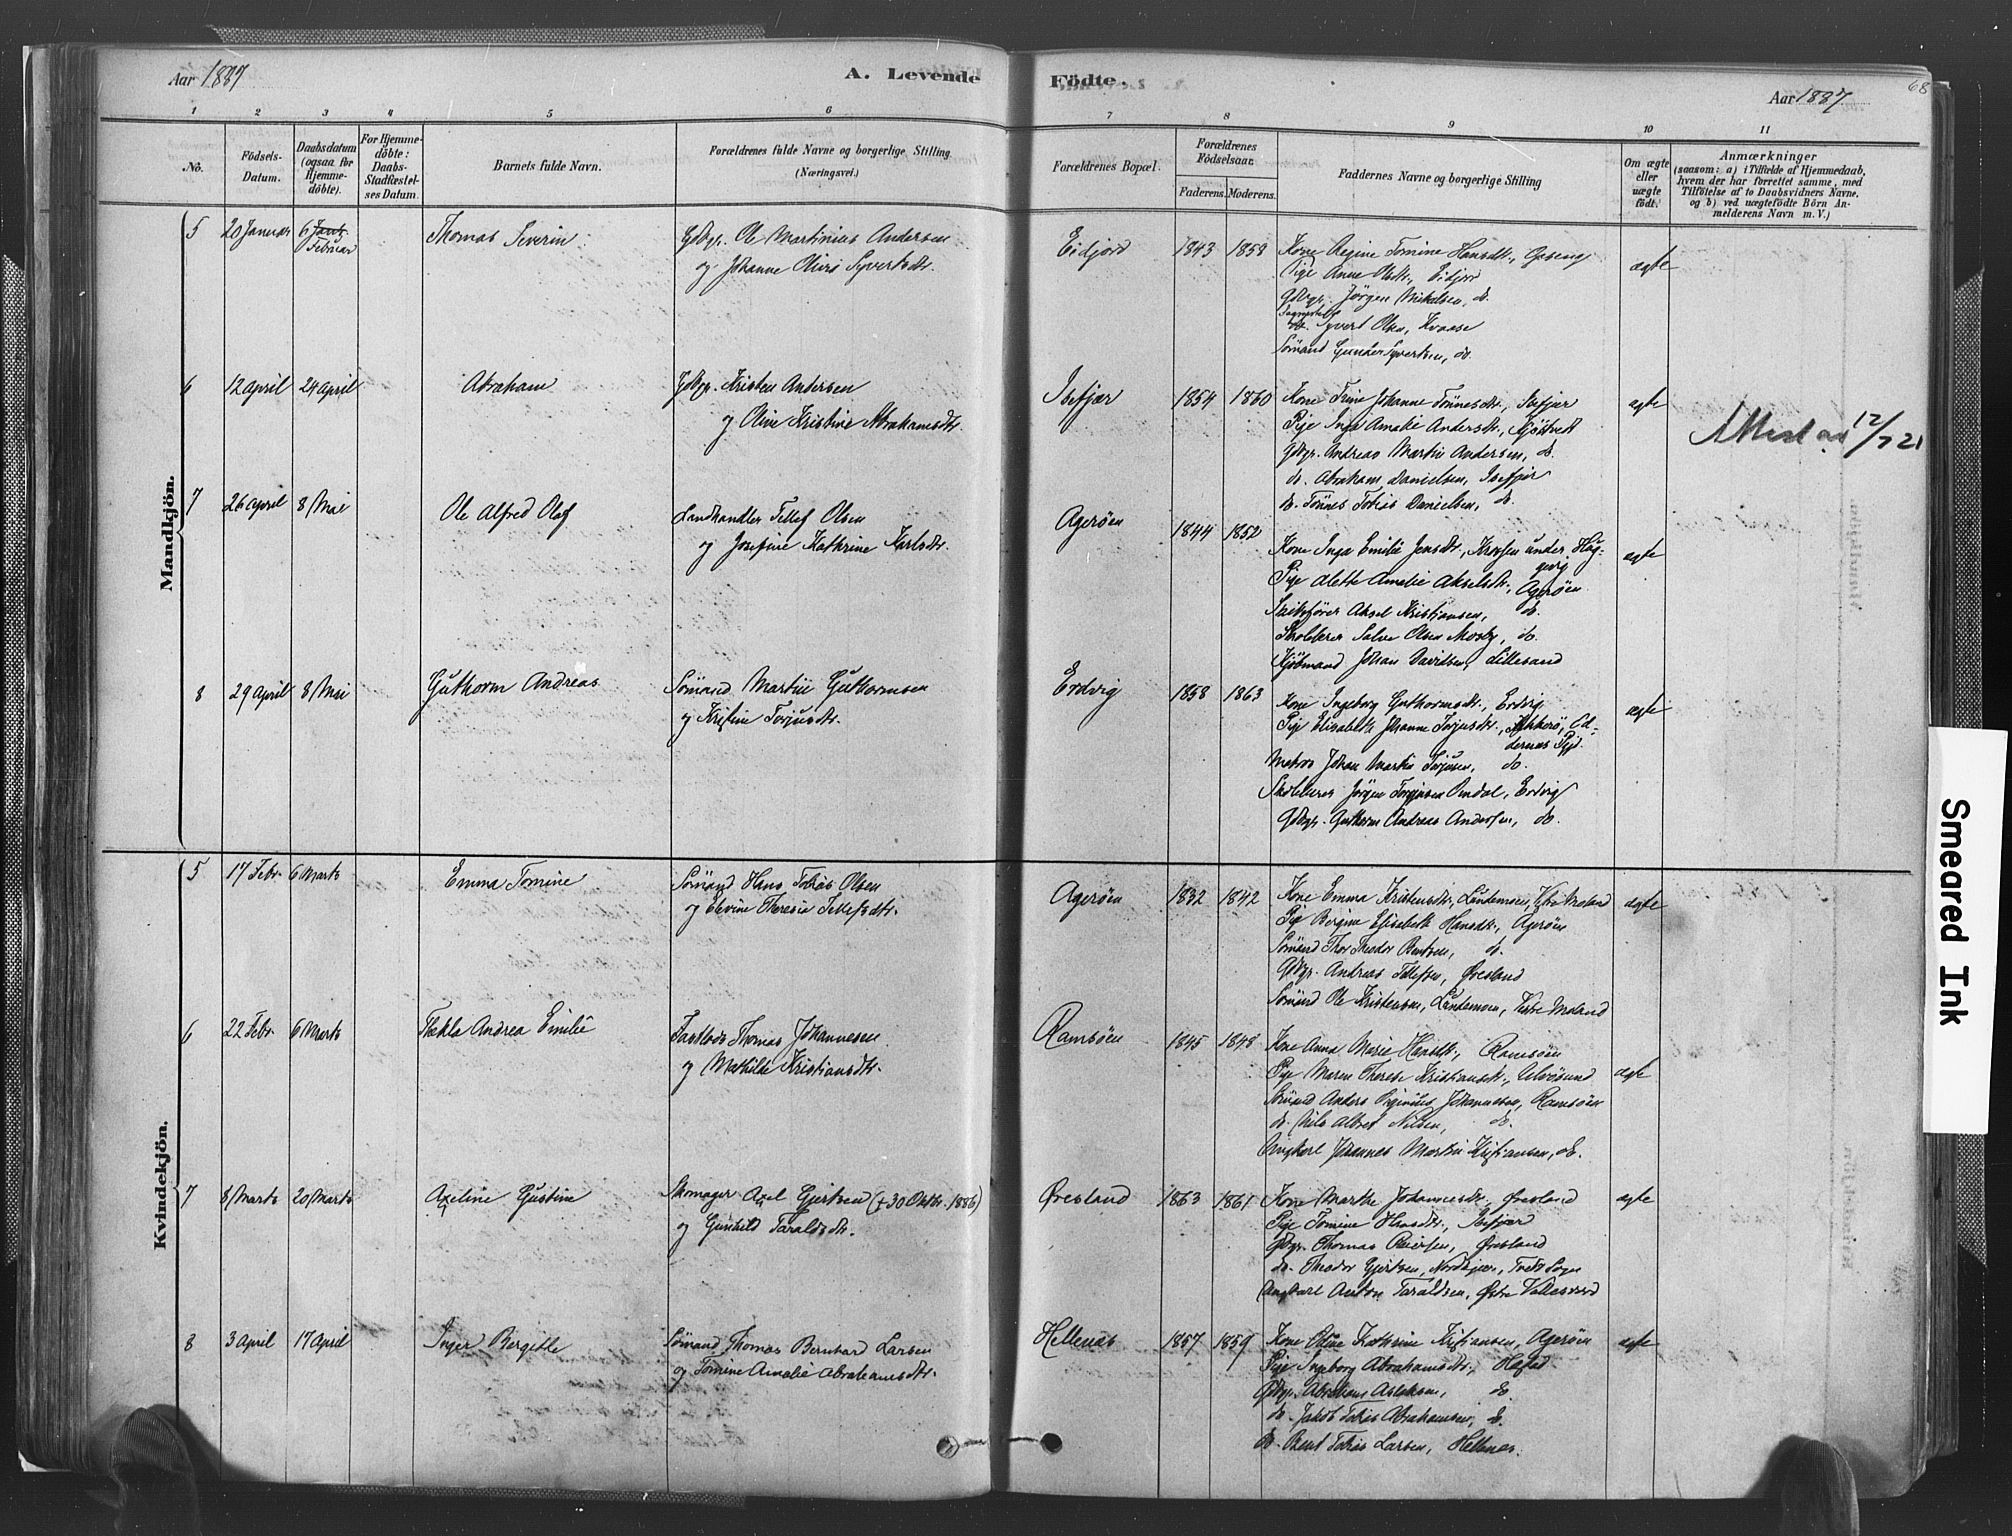 Aar 1887
A. Levende
Födte.
Aar 1887
68
1 2 3 4 5 6 7 8 9 10 11
No.
Födsels-
Datum.
Daabsdatum
(ogsaa for
Hjemme-
döbte).
For Hjemme-
döbte:
Daabs-
Stadfæstel-
ses Datum.
Barnets fulde Navn.
Forældrenes fulde Navne og borgerlige Stilling
(Næringsvei.)
Forældrenes Bopæl.
Forældrenes
Födselsaar.
Faderens. Moderens.
Faddernes Navne og borgerlige Stilling
Om ægte
eller
uægte
födt.
Anmærkninger
(saasom: a) i Tilfælde af Hjemmedaab,
hvem der har forrettet samme, med
Tilföielse af to Daabsvidners Navne.
og b) ved uægtefödte Börn An-
melderens Navn m. V.)
Mandkjön.
5 20 Januar 6
Februar
Thomas Severin
Gdbgr. Ole Martinius Andersen
og Johanne Olivi Syvertsdtr.
Eidjord 1843 1858
Kone Regine Tomine Hansdtr.,
Pige Anne Olsdtr., Eidjord
Gdbgr. Jörgen Mikalsen, do.
Syvert Olsen, Kvaase
Sömand Gunder Syvertsen, do.
ægte
6 12 April 24 April
Abraham
Gdbgr. Kristen Andersen
og Olive Kristine Abrahamsdtr.
Isefjær 1854 1860
Kone Trine Johanne Tönnesdtr., Isefjær
Pige Inga Amalie Andersdtr.,
Gdbgr. Andreas Martin Andersen, do.
do. Abraham Danielsen, Isefjær
do. Tönnes Tobias Danielsen, do.
ægte
Attest 12/7 21
7 26 April 8 Mai
Ole Alfred Olaf
Landhandler Tellef Olsen
og Josefine Kathrine Karlsdtr.
Ageröen 1844 1852
Kone Inga Emilie Jensdtr., under
Pige Alette Amalie Akselsdtr., Ageröen
Aksel Kristiansen, do.
Skolelærer Salve Olsen Mosby, do.
Kjöbmand Johan Davidsen, Lillesand
ægte
8 29 April 8 Mai
Guthorm Andreas
Sömand Martin Guthormsen
og Kristine Torjusdtr.
Erdvig 1858 1863
Kone Ingeborg Guthormsdtr., Erdvig
Pige Elisabeth Johanne Torjusdtr., Od-
dernes Pgd.
Matros Johan Martin Torjusen, do.
Skolelærer Jörgen Torjusen Omdal, Erdvig
Gdbgr. Guthorm Andreas Andersen, do.
ægte
Kvindekjön.
5 17 Febr. 6 Marts
Emma Tomine
Sömand Hans Tobias Olsen
og Elevine Theresia Tellefsdtr.
Ageröen 1832 1842
Kone Emma Kristensdtr., Lundemoen, Vestre Moland
Pige Bergine Elisabeth Hansdtr., Ageröen
Sömand Thor Theodor Bentsen, do.
Gdbgr. Andreas Tellefsen, Øresland
Sömand Ole Kristensen, Lundemoen, Vestre Moland
ægte
6 22 Febr. 6 Marts
Thekla Andrea Emilie
Thomas Johannesen
og Mathilde Kristiansdtr.
Ramsöen 1845 1848
Kone Anna Marie Hansdtr., Ramsöen
Pige Maren Therese Kristiansdtr., Ulvösund
Sömand Anders Johannesen, Ramsöen
do. Nils Albret Nilsen, do.
Ungkarl Johannes Martin Kristiansen, do.
ægte
7 8 Marts 20 Marts
Axeline Gustine
Skomager Axel Gjertsen (+ 30 Oktbr. 1886)
og Gunhild Taraldsdtr.
Øresland 1863 1861
Kone Marthe Johannesdtr., Øresland
Pige Tomine Hansdtr., Isefjær
Gdbgr. Thomas Reiersen, Øresland
do. Theodor Gjertsen, Tveits Sogn
Ungkarl Anton Taraldsen, Østre Vallesværd
ægte
8 3 April 17 April
Inger Bergitte
Sömand Thomas Bernhard Larsen
og Tomine Amalie Abrahamsdtr.
Hellenes 1857 1859
Kone Oline Kathrine Kristiansen, Ageröen
Pige Ingeborg Abrahamsdtr.,
Gdbgr. Abraham Aslaksen, do.
do. Jakob Tobias Abrahamsen, do.
do. Bent Tobias Larsen, Hellenes.
ægte
Smeared Ink